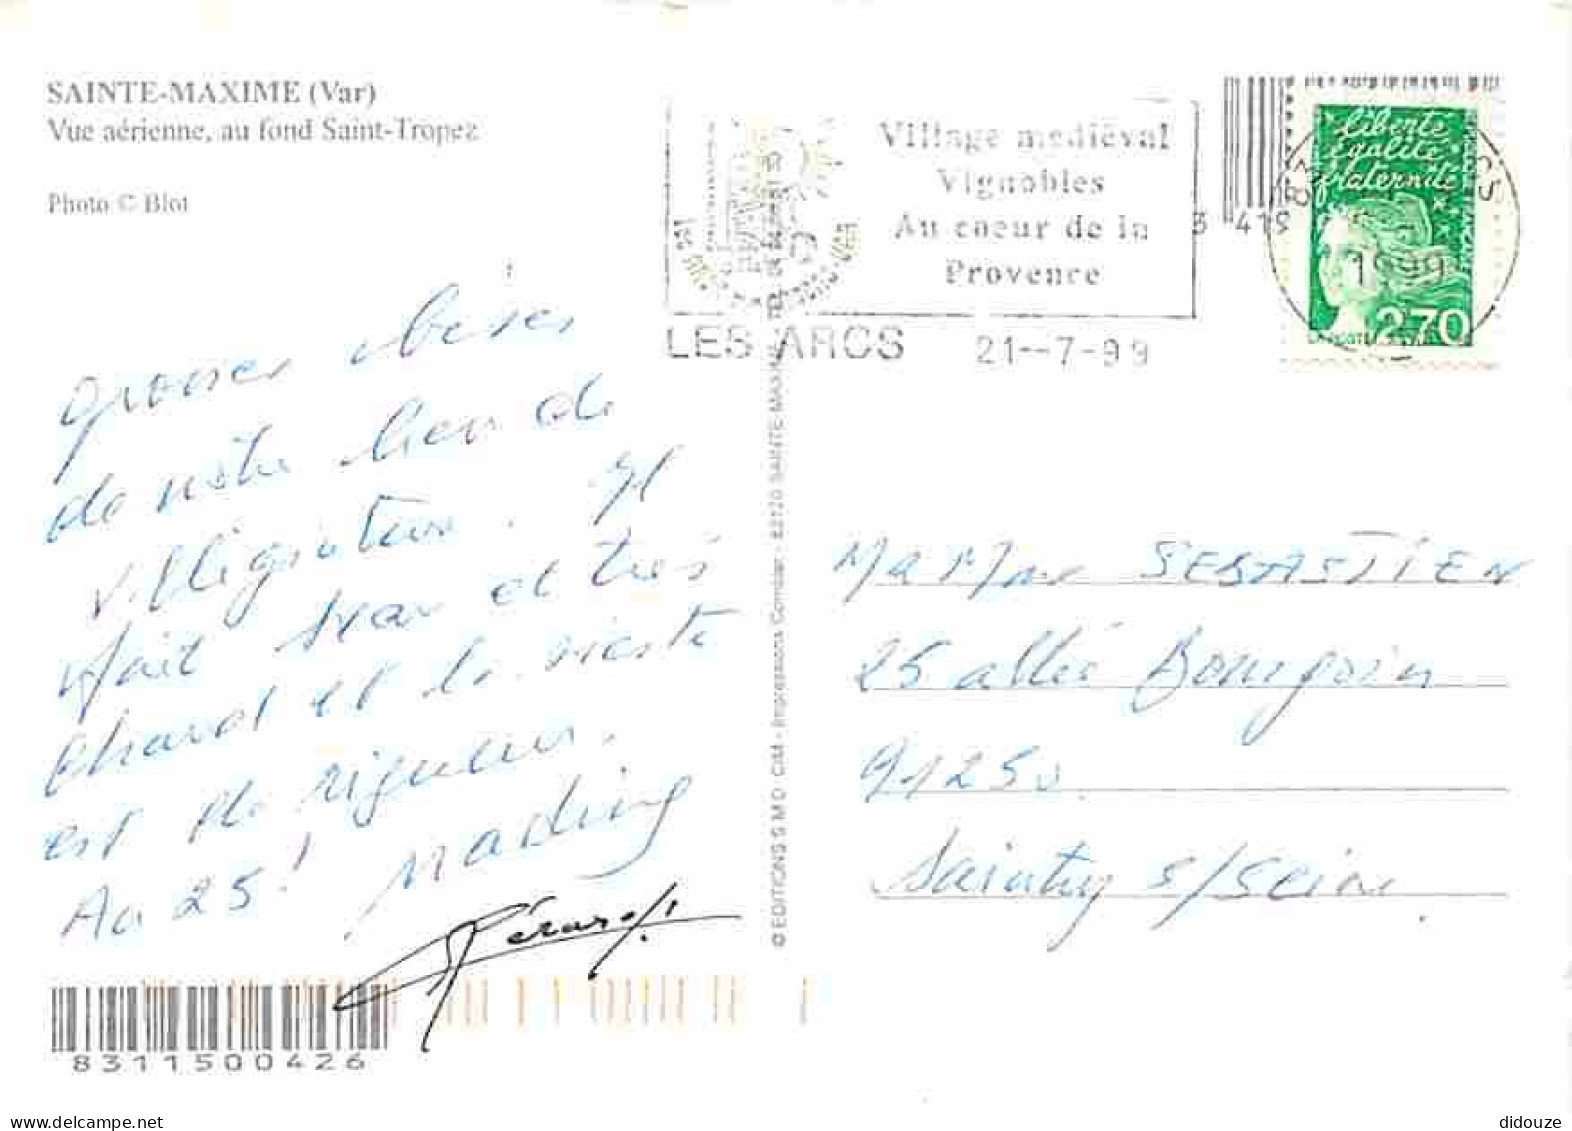 SAINTE-MAXIME (Var)
Vue aérienne, au fond Saint-Tropez
Photo © Blot
Village médiéval
Vignobles
Au coeur de la
Provence
LES ARCS 21--7-99
3 419
liberté
égalité
fraternité
1999
2,70
Grosses bises
de notre lieu de
villégiature. Il
fait beau et très
chaud et la sieste
est de rigueur.
Au 25!
Gérard
8311500426
© EDITIONS S.M.D. CIM - Impressions Combier - 83120 SAINTE-MAXIME
M a Mme SEBASTIEN
25 allée Bourgoin
91250
Saintry s/Seine.
didouze